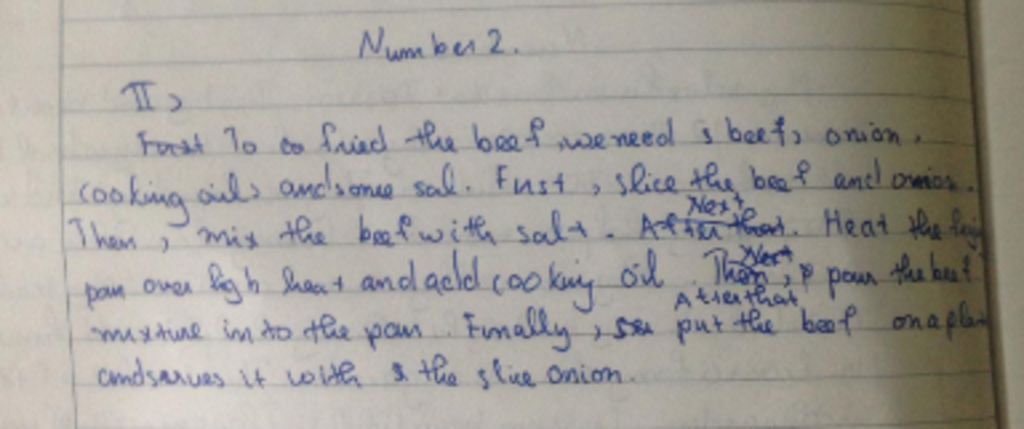 Number 2.
II,
First To co fried the beef, we need s beef, onion,
cooking oil, and some sal. First, slice the beef and onion.
Next
Then, mix the beef with salt. After that. Heat the
Next
pan over high heat and add cooking oil. Then, pour the beef
After that
mixture in to the pan Finally, put the beef on a plat
and serves it with the slice onion.